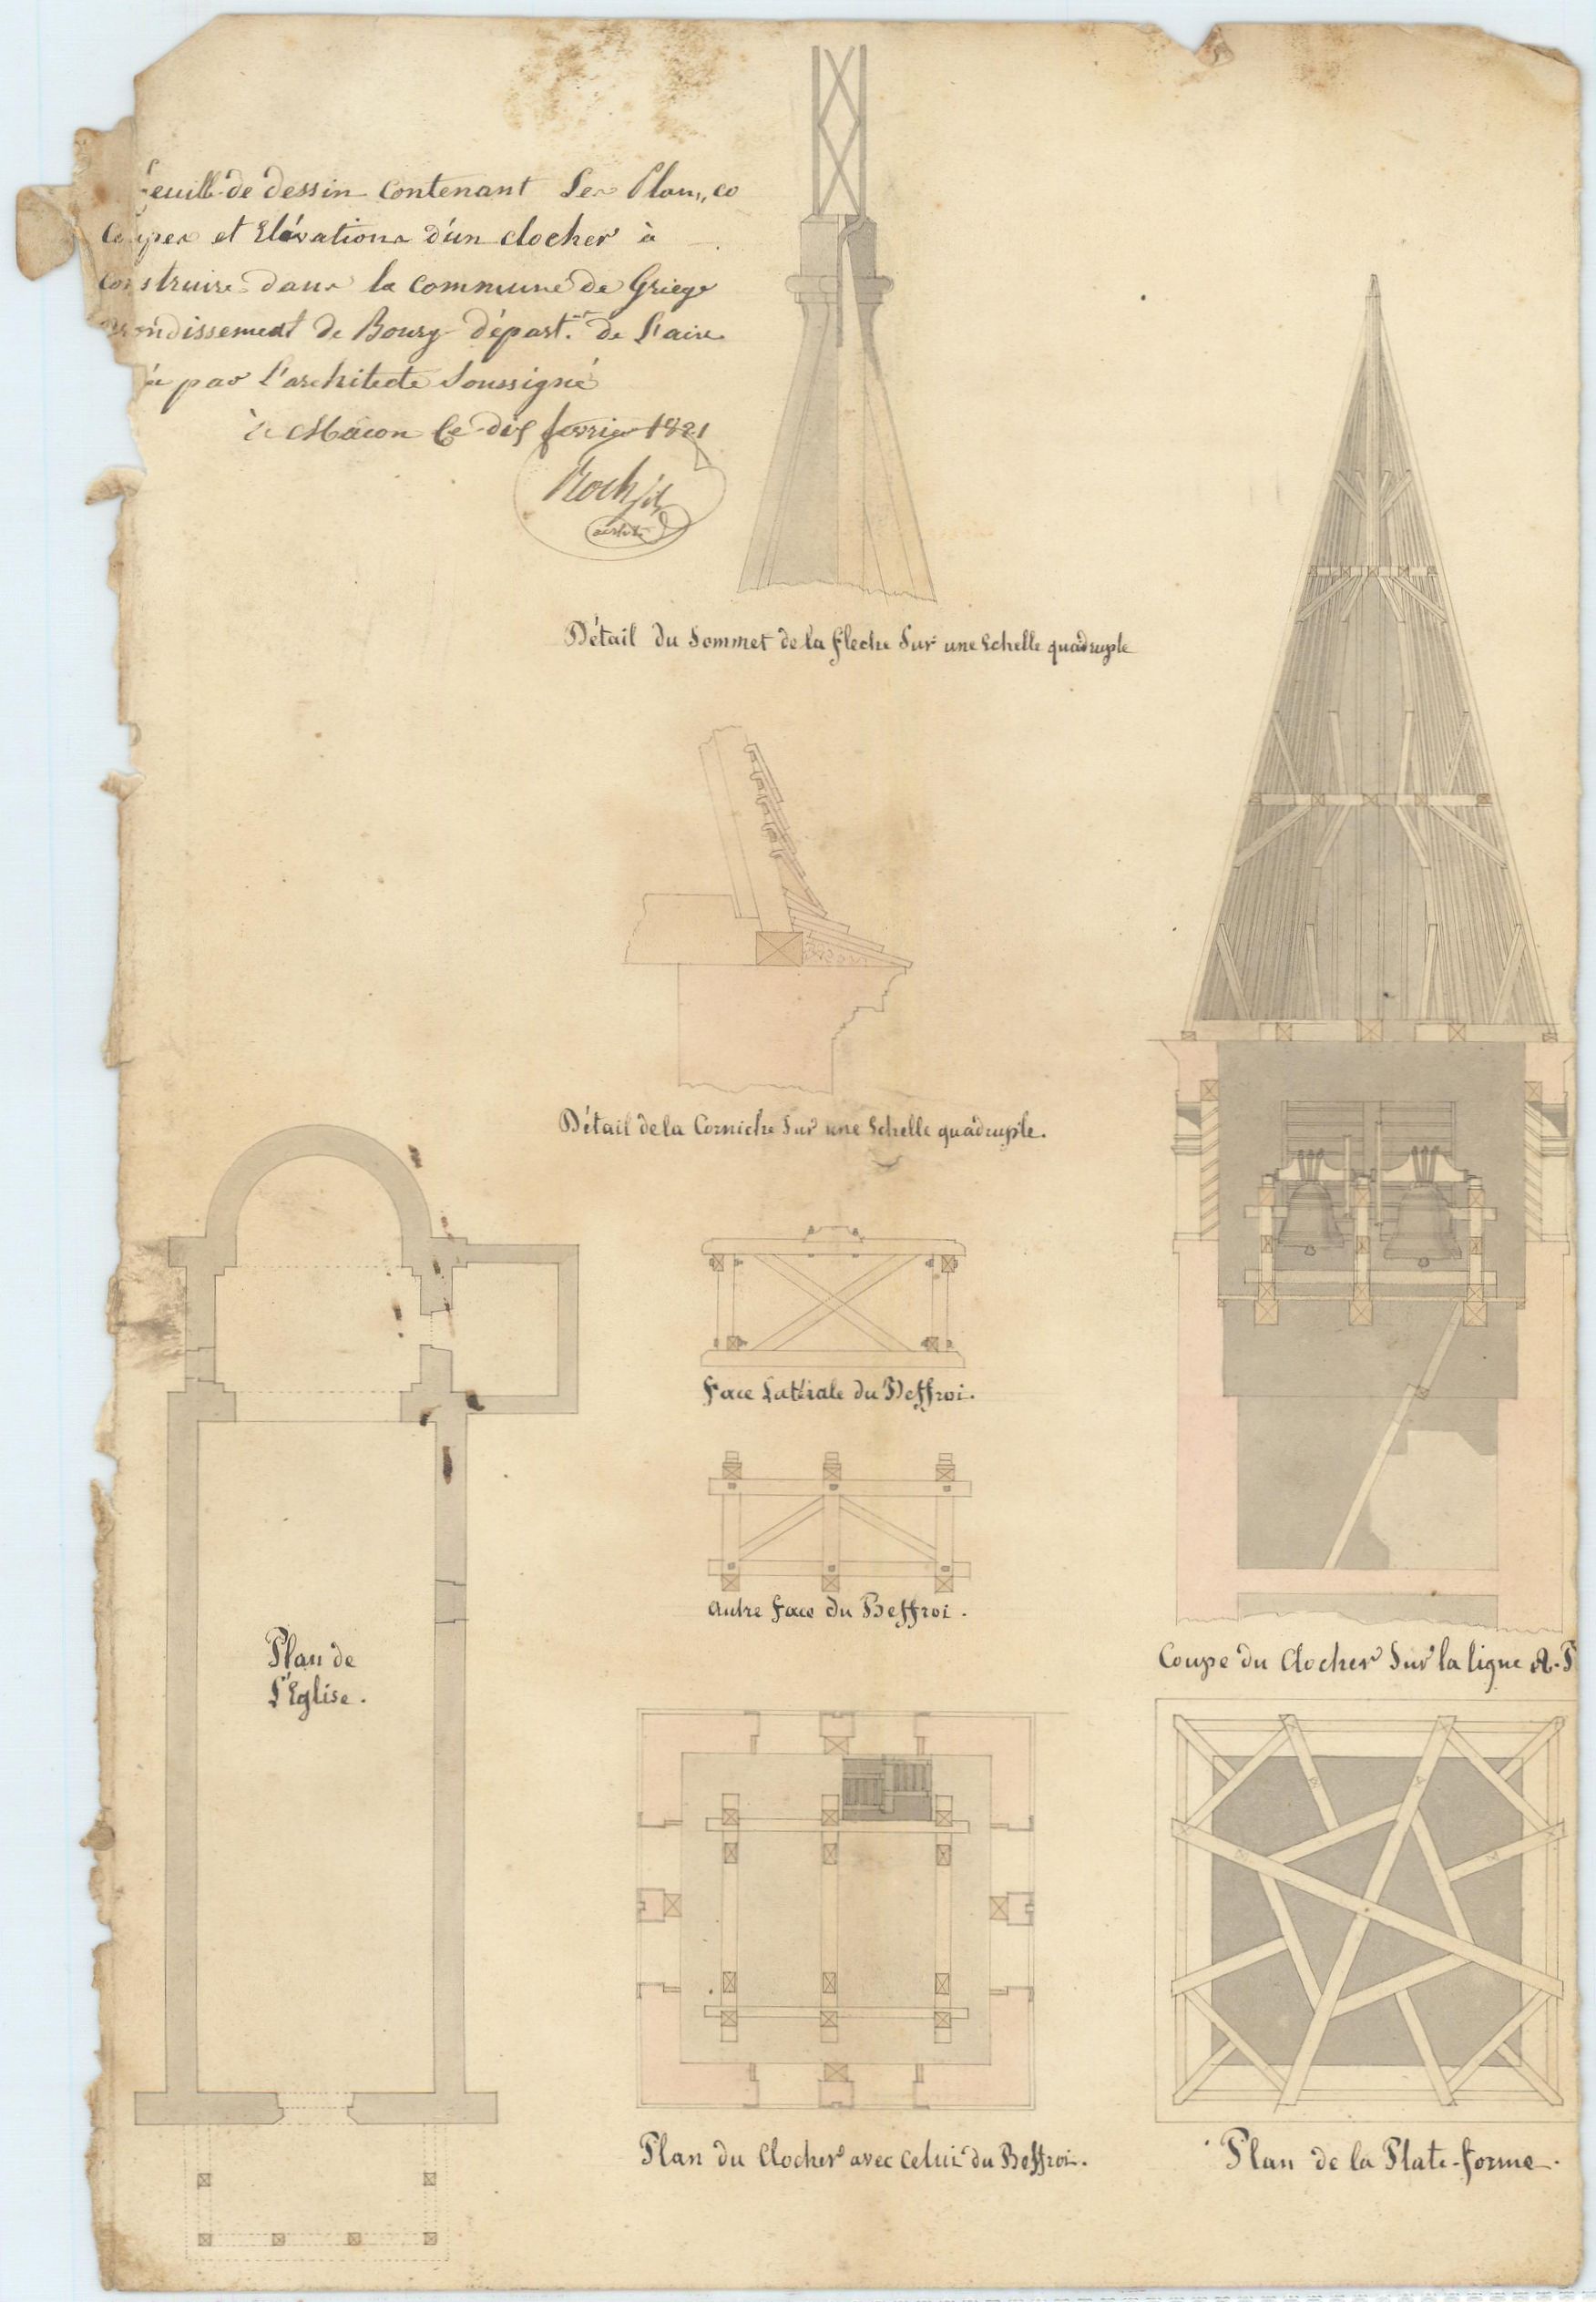 feuille de dessin contenant Les Plans, co
Coupes et Elévations d'un clocher à
construire dans la commune de Griege
arrondissement de Bourg départ.nt de L'ain
par L'architecte Soussigné
à Mâcon Ce dix fevrier 1821
Roch fils
Détail du Sommet de la fleche Sur une Echelle quadruple
Détail de la Corniche Sur une Echelle quadruple.
face Latérale du Beffroi.
autre face du Beffroi.
Plan de
L'Eglise.
Coupe du Clocher Sur la ligne A-
Plan du Clocher avec celui du Beffroi.
Plan de la Plate-forme.